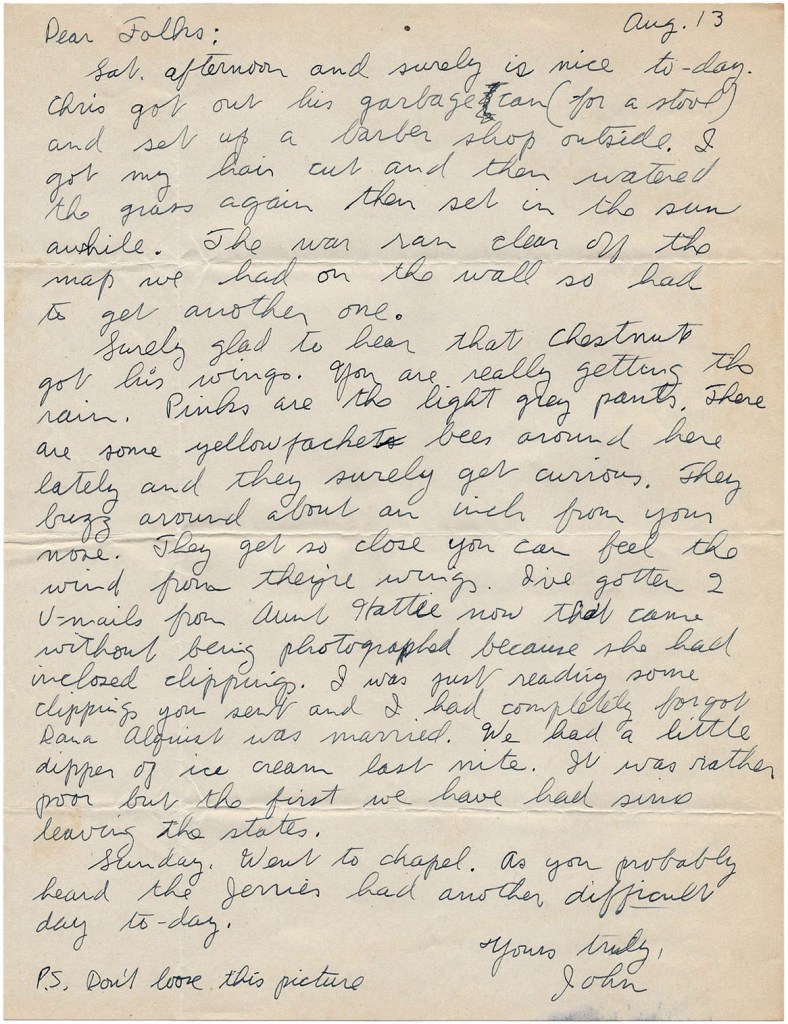 Aug. 13
Dear Folks:
Sat. afternoon and surely is nice to-day.
Chris got out his garbage can (for a stool)
and set up a barber shop outside. I
got my hair cut and then watered
the grass again then set in the sun
awhile. The war ran clear off the
map we had on the wall so had
to get another one.
Surely glad to hear that Chestnut
got his wings. You are really getting the
rain. Pinks are the light grey pants. There
are some yellowjackets bees around here
lately and they surely get curious. They
buzz around about an inch from your
nose. They get so close you can feel the
wind from they're wings. I've gotten 2
V-mails from Aunt Hattie now that came
without being photographed because she had
inclosed clippings. I was just reading some
clippings you sent and I had completely forgot
Dana Alquist was married. We had a little
dipper of ice cream last nite. It was rather
poor but the first we have had sinc
leaving the states.
Sunday. Went to chapel. As you probably
heard the Jerries had another difficult
day to-day.
Yours truly,
John
P.S. Don't loose this picture